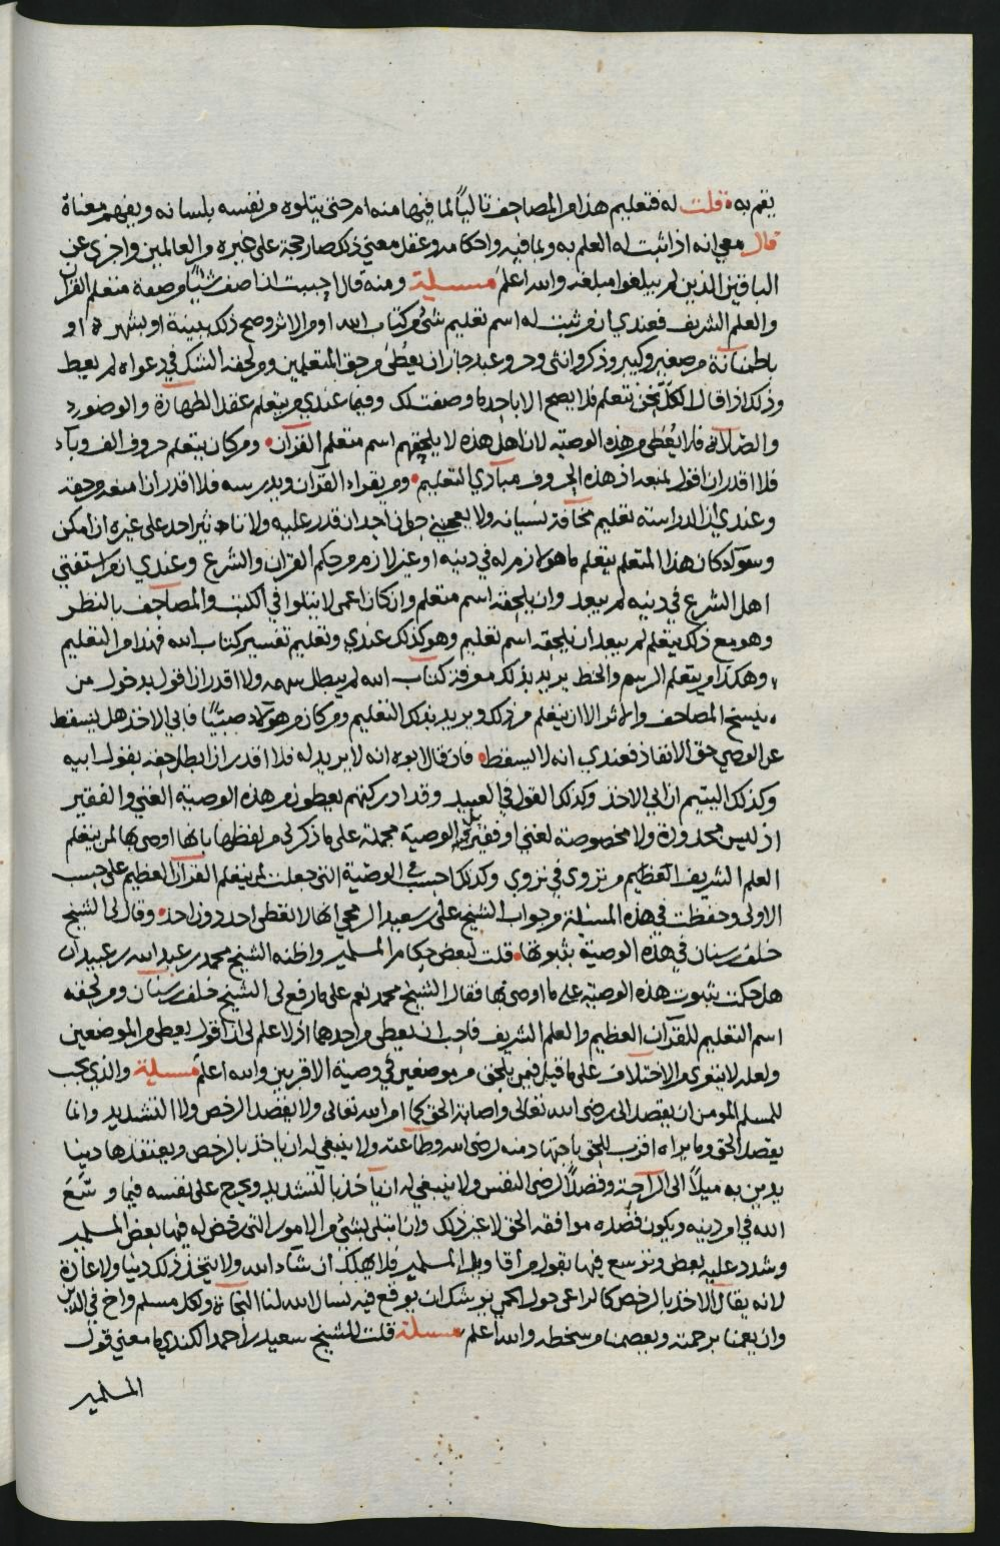 يقم به قلت له فتعليم هذا من المصاحف تاليًا لما فيها منه ام حتى يتلوه من نفسه بلسانه ويفهم معناه
قال معي انه اذا ثبت له العلم به وبما فيه واحكامه وعقل معني ذلك صار حجة على غيره من العالمين واجزى عن
الباقين الذين لم يبلغوا مبلغه والله اعلم مسـئلة ومنه قال احببت ان اصف شيًا من صفة متعلم القران
والعلم الشريف فعندي ان من ثبت له اسم تعليم شئ من كتاب الله او من الاثر وصح ذلك ببينة او بشهرة او
باطمنانة من صغير وكبير وذكر وانثى وحر وعبد جاز ان يعطى من حق المتعلمين ومن لحقه الشك في دعواه لم يعط
وذلك اذا قال الكل نحن نتعلم فلا يصح الا باحد ما وصفت لك وفيما عندي من يتعلم عقد الطهارة والوضوء
والصلاة فلا يعطى من هذه الوصية لان اهل هذه لا يلحقهم اسم متعلم القرآن ومن كان يتعلم حروف الف وبآء
فلا اقدر ان اقول بمنعه اذ هذه الحروف مبآدي التعليم ومن يقراء القرآن ويدرسه فلا اقدر ان امنعه من حقه
وعندي ان الدراسته تعليم مخافة نسيانه ولا يعجبني حرمان احد ان قدر عليه ولا تاثير احد على غيره ان امكن
وسوآء كان هذا المتعلم يتعلم ما هو لازم له في دينه او غير لازم من حكم القران والشرع وعندي ان من استفتي
اهل الشرع في دينه لم يبعد وان يلحقه اسم متعلم وان كان اعمى لا يتلوا في الكتب والمصاحف بالنظر
وهو مع ذلك يتعلم لم يبعد ان يلحقه اسم تعليم وهو كذلك عندي وتعليم تفسير كتاب الله فهذا من التعليم
وهكذا من يتعلم الرسم والخط يريد بذلك معرفة كتاب الله لم يبطل سهمه ولا اقدر ان اقول بدخول من
ينسخ المصاحف والاثر الا ان يتعلم من ذلك ويريد بذلك التعليم ومن كان من هولآء صبيًا فابى الاخذ هل يسقط
عن الوصي حق الانفاذ فعندي انه لا يسقط فان قال ابوه انه لا يريد له فلا اقدر ان ابطل حقه بقول ابيه
وكذلك اليتيم ان ابى الاخذ وكذلك القول في العبيد وقد ادركتهم يعطون من هذه الوصية الغني والفقير
اذ ليس محدودة ولا مخصوصة لغني او فقير بل الوصية مجملة على ما ذكر لي من لفظها بانها اوصى بها لمن يتعلم
العلم الشريف العظيم من نزوى في نزوى وكذلك احسب في الوصية التي جعلت لمن يتعلم القرآن العظيم على حسب
الاولى وحفظت في هذه المسئلة من جواب الشيخ على بن سعيد الرمحي انها لا تعطى احد دون احد وقال لي الشيخ
خلف بن سنان في هذه الوصية بثبوتها قلت لبعض حكام المسلمين واظنه الشيخ محمد بن عبد الله بن عبيدان
هل حكمت بثبوت هذه الوصية على ما اوصى بها فقال الشيخ محمد نعم على ما رفع لي الشيخ خلف بن سنان ومن لحقه
اسم التعليم للقرآن العظيم والعلم الشريف فاحب ان يعطى من احدهما اذ لا علم لي ان اقول يعطى من الموضعين
ولعله لا يتعرى من الاختلاف على ما قيل فيمن يلحق من موضعين في وصية الاقربين والله اعلم مسـئلة والذي يجب
للمسلم المومن ان يقصد الى رضى الله تعالى واصابة الحق كما امر الله تعالى ولا يقصد الرخص ولا التشديد وانما
يقصد الحق وما يراه اقرب للحق باجتهاد منه لرضى الله وطاعته ولا ينبغي له ان ياخذ بالرخص ويعتقدها دينا
يدين به ميلاً الى الراحة وقصدًا لرضى النفس ولا ينبغي له ان يآخذ بالتشديد ويحرج على نفسه فيما وسَّعَ
الله في امر دينه ويكون قصده موافقة الحق لا غير ذلك وان ابتلى بشئ من الامور التي رخص له فيها بعض المسلمين
وشدد عليه بعض وتوسع فيها بقول من اقاويل المسلمين فلا يهلك ان شآء الله ولا يتخذ ذلك دينا ولا عادة
لانه يقال الاخذ بالرخص كالراعى حول الحمى يوشك ان يوقع فيه نسال الله لنا النجاة ولكل مسلم واخ في الدين
وان يعمنا برحمته ويعصمنا من سخطه والله اعلم مسـئلة قلت للشيخ سعيد بن احمد الكندي ما معني قول
المسلمين